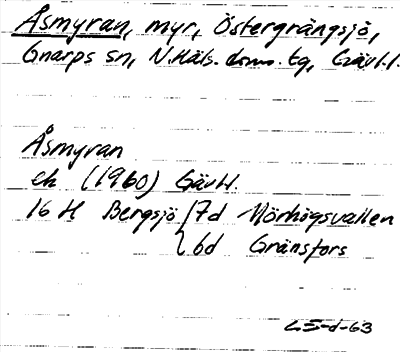 Åsmyran, myr, Östergrängsjö,
Gnarps sn, N.Häls. doms. tg, Gävl.l.
Åsmyran
ek (1960) Gävl.
16 H Bergsjö 7d Mörhögsvallen
6d Gränsfors